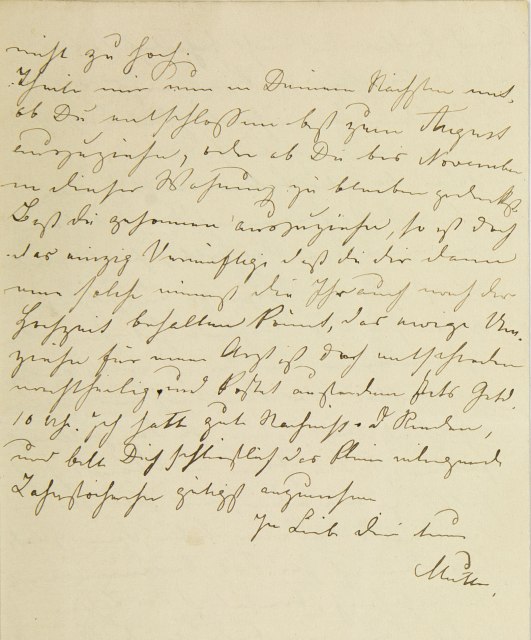 nicht zu hoch.
Theile mir nun in Deinem Nächsten mit,
ob Du entschlossen bist zum August
auszuziehn, oder ob Du bis November
in dieser Wohnung zu bleiben gedenkst.
Bist du gesonnen auszuziehn, so ist doch
das einzig Vernünftige daß du dir dann
eine solche nimmst die Ihr auch nach der
Hochzeit behalten könnt, das ewige Um-
ziehn für einen Arzt ist doch entschieden
nachtheilig und kostet außerdem stets Geld.
10 Uhr. Ich hatte gute Nachricht
und bitte Dich schließlich das kleine
gütigst anzunehmen
In Liebe dein
Mutter.